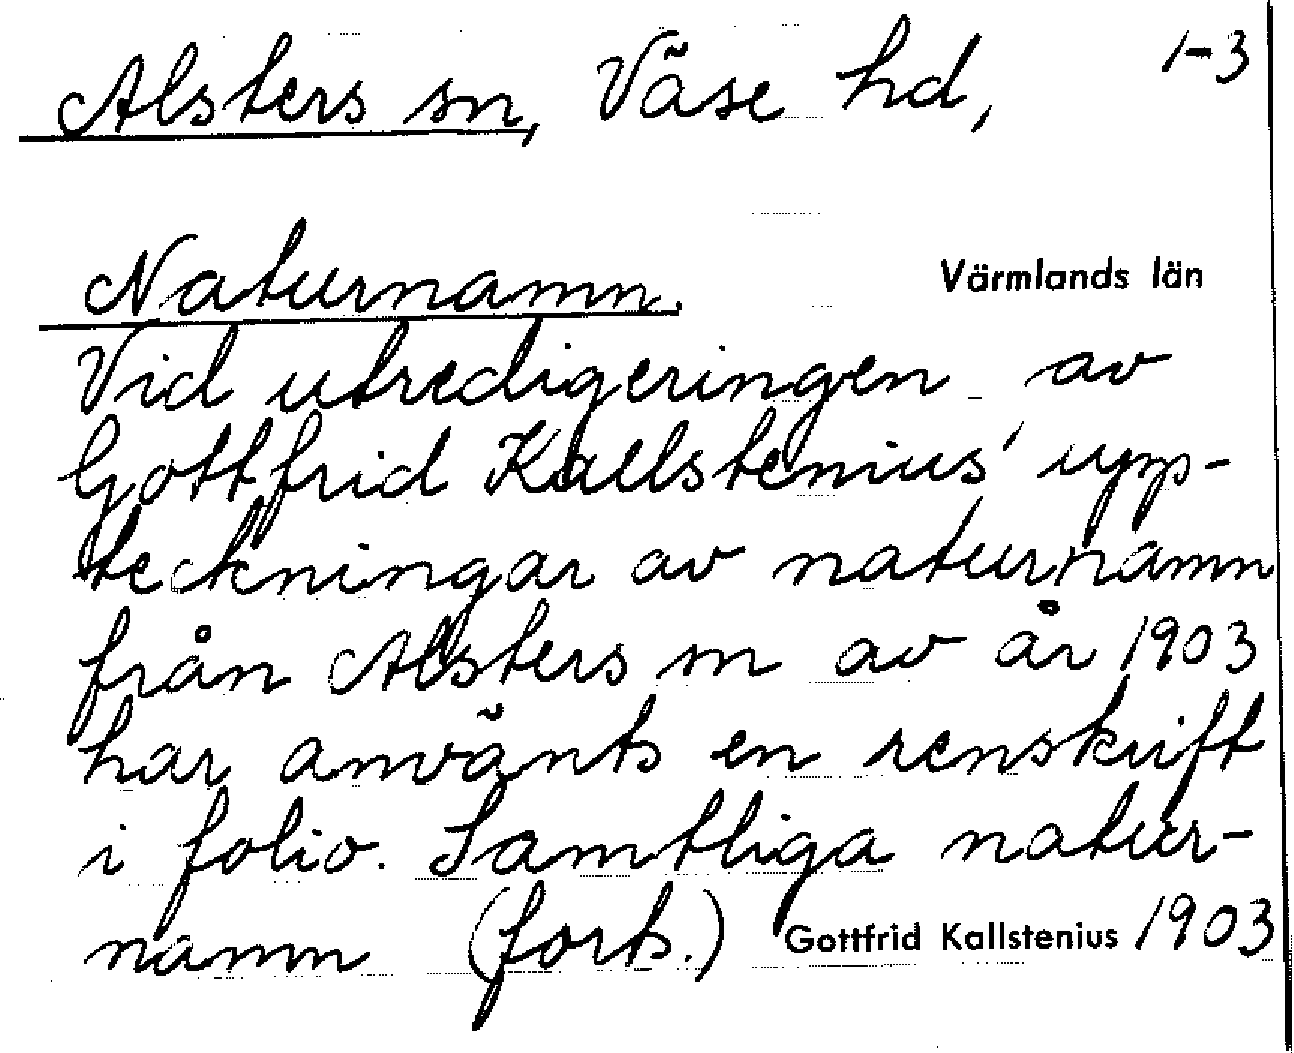 Alsters sn, Väse hd, 1-3
Naturnamn. Värmlands län
Vid utredigeringen av
Gottfrid Kallstenius' upp-
teckningar av naturnamn
från Alsters sn av år 1903
har använts en renskrift
i folio. Samtliga natur-
namn (forts.) Gottfrid Kallstenius 1903